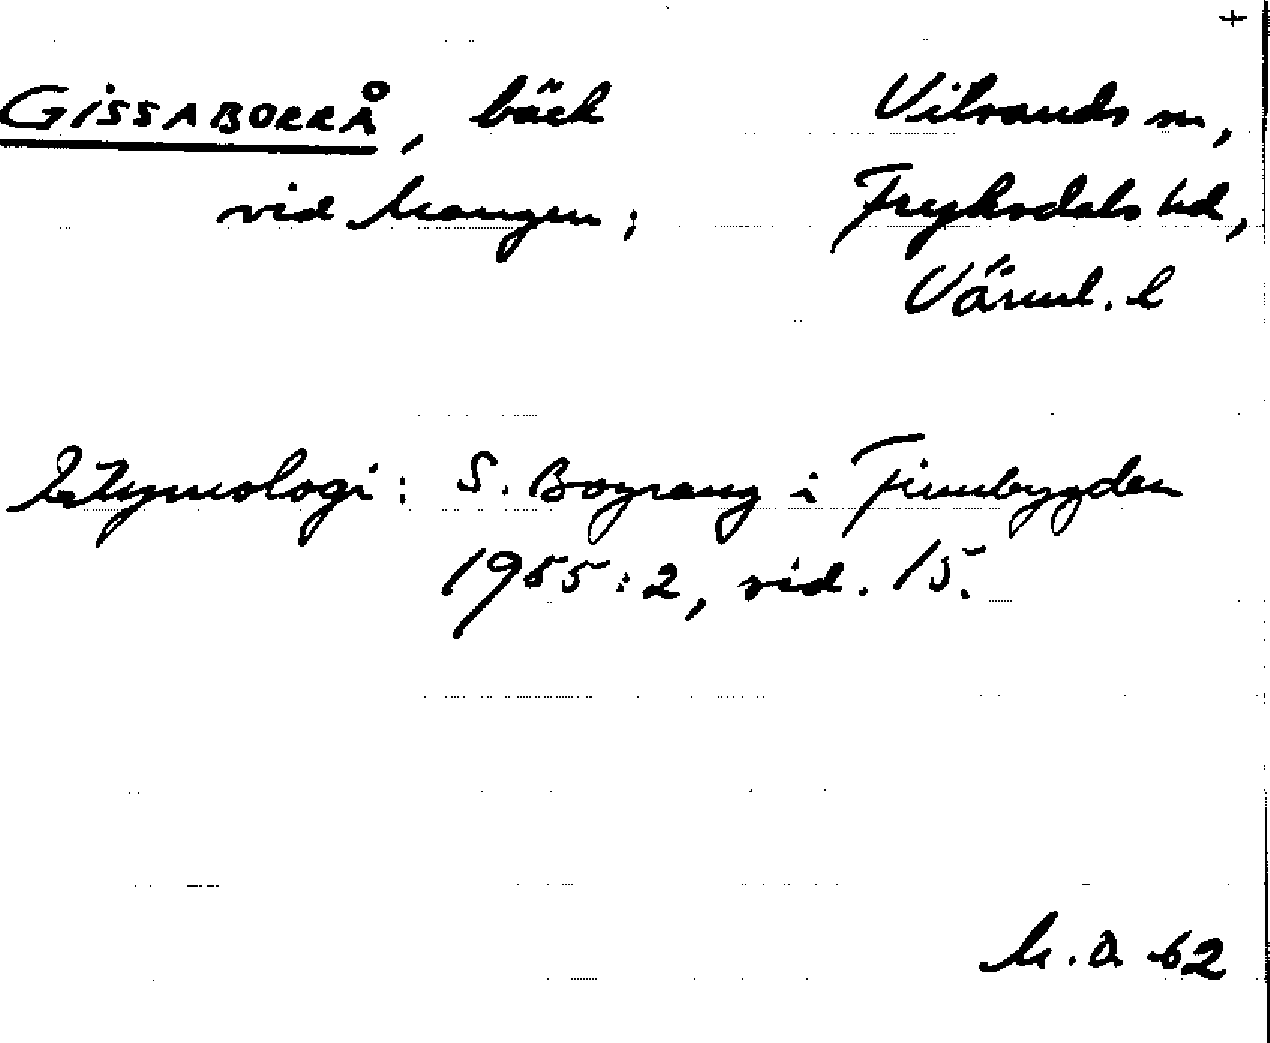 +
GISSABORRÅ, bäck Vitsands sn,
vid Mangen; Fryksdals hd,
Värml. l
Etymologi: S. Bograng i Finnbygden
1955:2, sid. 15.
M. O. 62